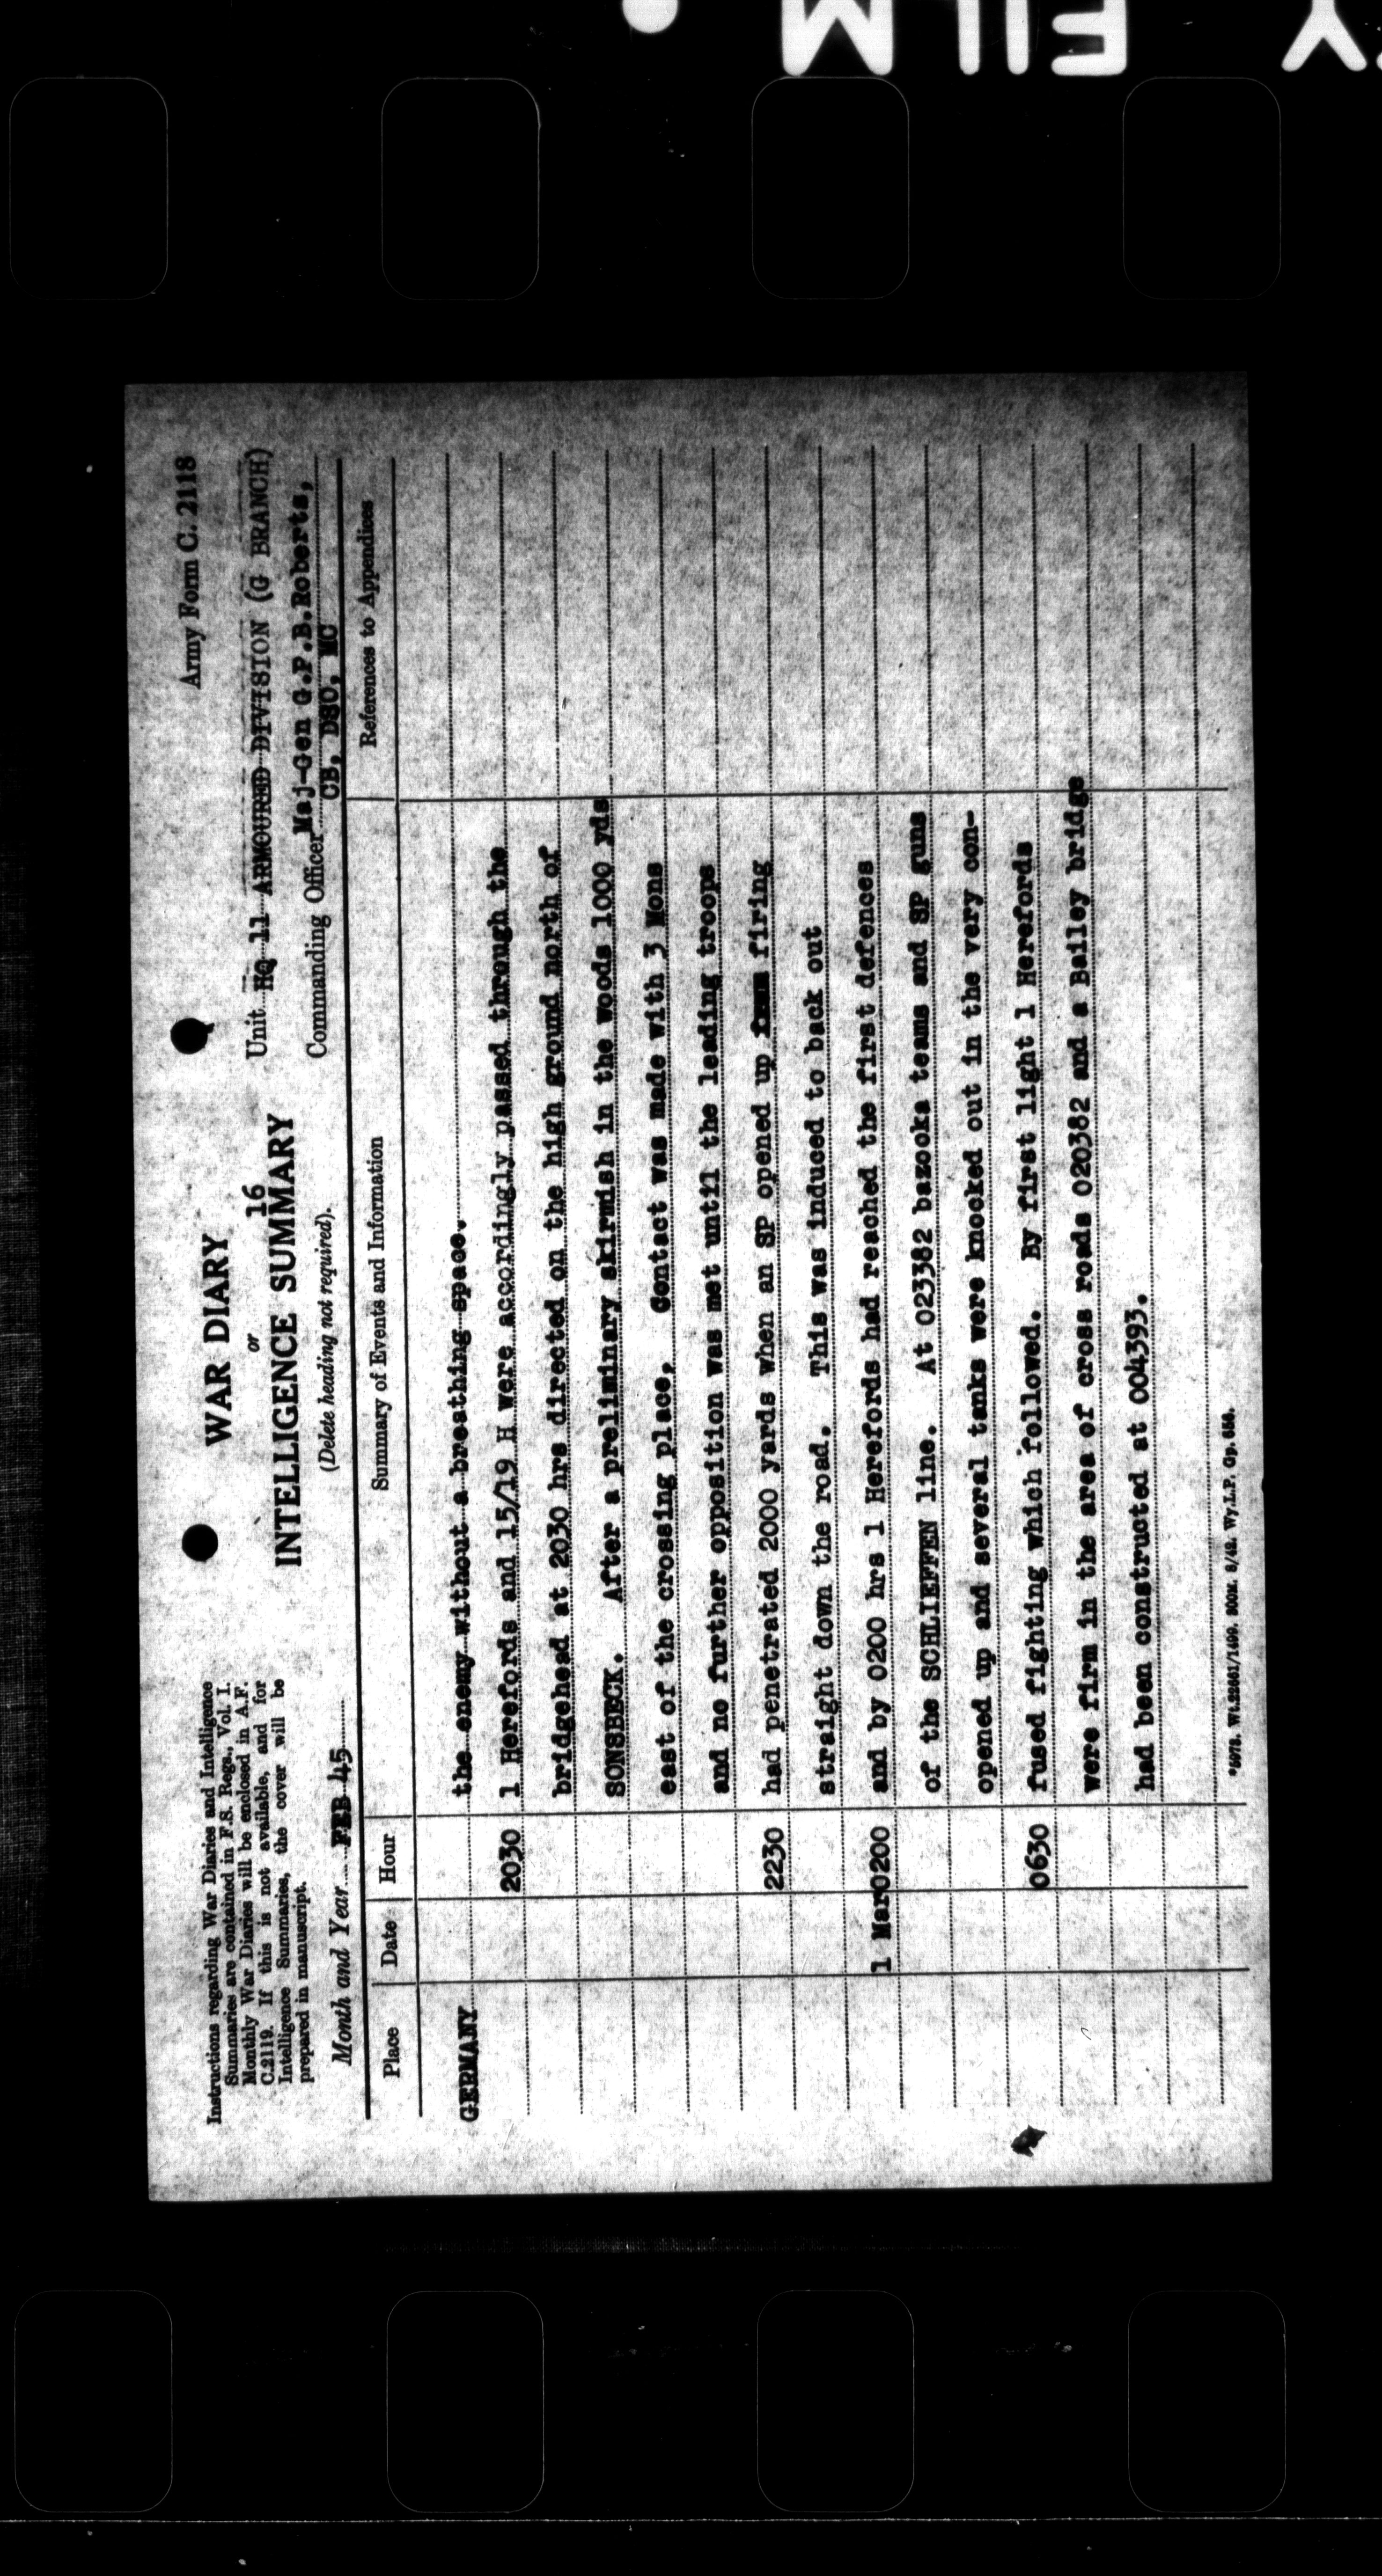 FILM
Army Form C. 2118
WAR DIARY
or 16
INTELLIGENCE SUMMARY
(Delete heading not required).
Instructions regarding War Diaries and Intelligence
Summaries are contained in F.S. Regs., Vol. I.
Monthly War Diaries will be enclosed in A.F.
C.2119. If this is not available, and for
Intelligence Summaries, the cover will be
prepared in manuscript.
Unit HQ 11 ARMOURED DIVISION (G BRANCH)
Commanding Officer Maj-Gen G.P.B.Roberts,
CB, DSO, MC
Month and Year FEB 45
Place Date Hour Summary of Events and Information References to Appendices
GERMANY the enemy without a breathing space.
2030 1 Herefords and 15/19 H were accordingly passed through the
bridgehead at 2030 hrs directed on the high ground north of
SONSBECK. After a preliminary skirmish in the woods 1000 yds
east of the crossing place, contact was made with 3 Mons
and no further opposition was met until the leading troops
2230 had penetrated 2000 yards when an SP opened up firing
straight down the road. This was induced to back out
1 Mar 0200 and by 0200 hrs 1 Herefords had reached the first defences
of the SCHLIEFFEN line. At 023382 bazooka teams and SP guns
opened up and several tanks were knocked out in the very con-
0630 fused fighting which followed. By first light 1 Herefords
were firm in the area of cross roads 020382 and a Bailey bridge
had been constructed at 004393.